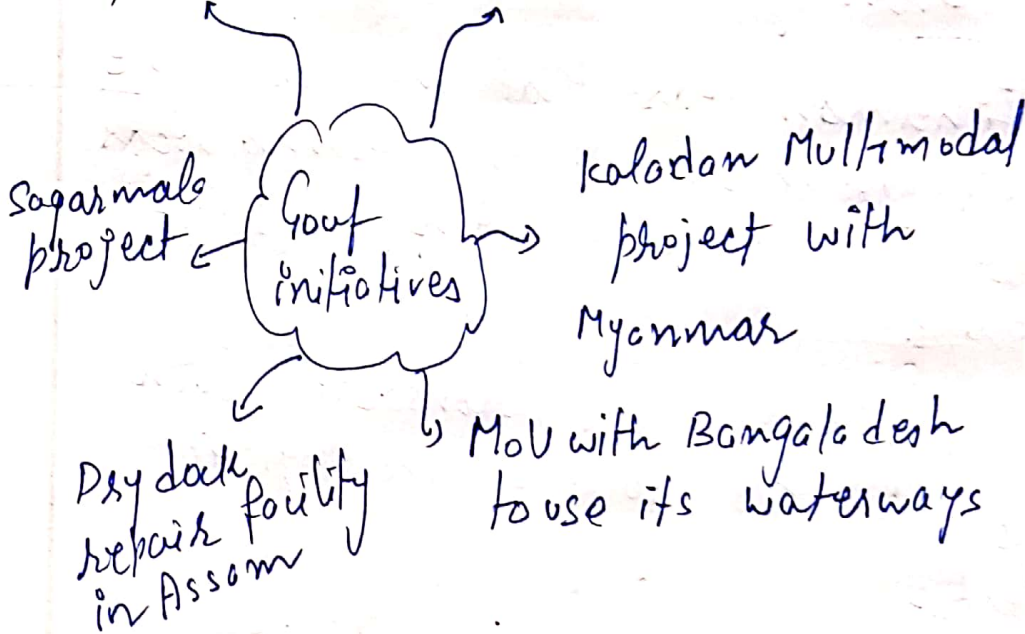 Sagarmala
project
Govt
initiatives
Kaladan Multimodal
project with
Myanmar
MoU with Bangaladesh
to use its waterways
Dry dock
repair facility
in Assam